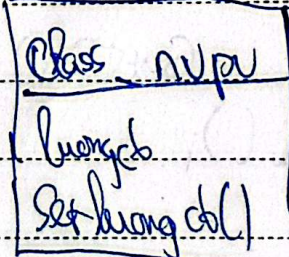 class nvpv
luongcb
Set luong cb()